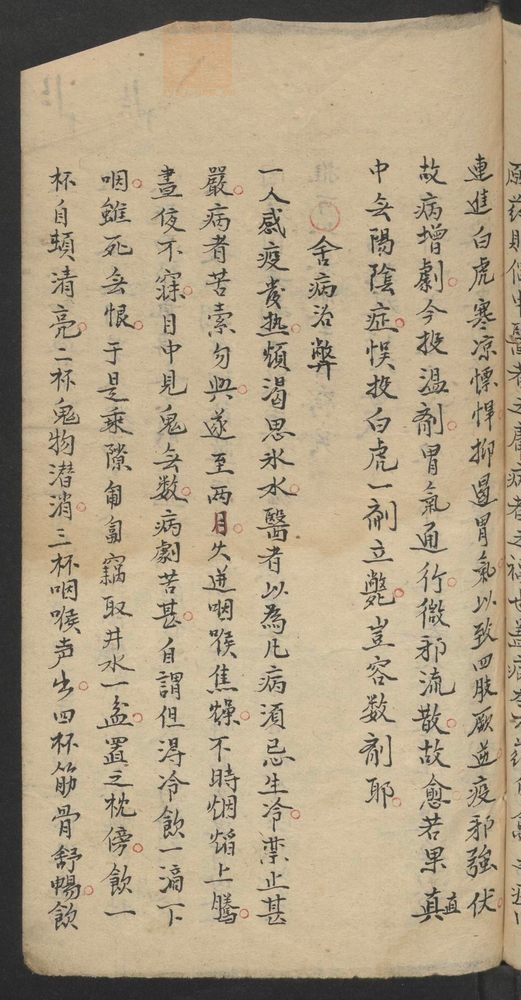 連進白虎寒凉慓悍抑遏胃氣以致四肢厥逆疫邪强伏
故病增劇今投温剤胃氣通行微邪流散故愈若果真直
中無陽陰症悮投白虎一剤立斃豈容数剤耶
舍病治弊
一人感疫發热煩渴思氷水醫者以為凡病湏忌生冷禁止甚
嚴病者苦索勿與遂至两月欠迸咽喉焦燥不時烟焰上騰
晝夜不寐目中見鬼無数病劇苦甚自謂但淂冷飲一滴下
咽雖死無恨于是乘隙匍匐竊取井水一盆置之枕傍飲一
杯自頓清亮二杯鬼物潜消三杯咽喉声出四杯筋骨舒暢飲